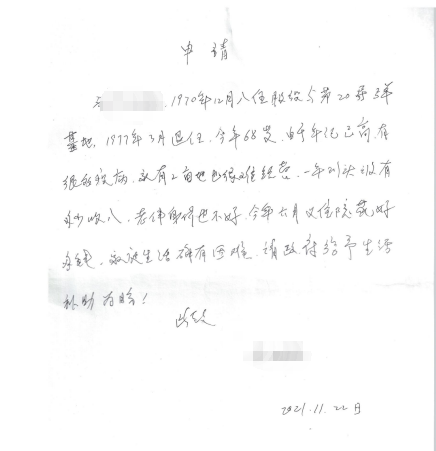 申请
1970年12月入伍服役与第20号
基地，1977年3月退伍，今年68岁，由于年纪已高，有
很多疾病，家有二亩地也很难经营，一年到头没有
多少收入，老伴身体也不好，今年六月又住院花好
多钱，家庭生活确有困难，请政府给予生活
补助为盼！
此致
2021.11.22日